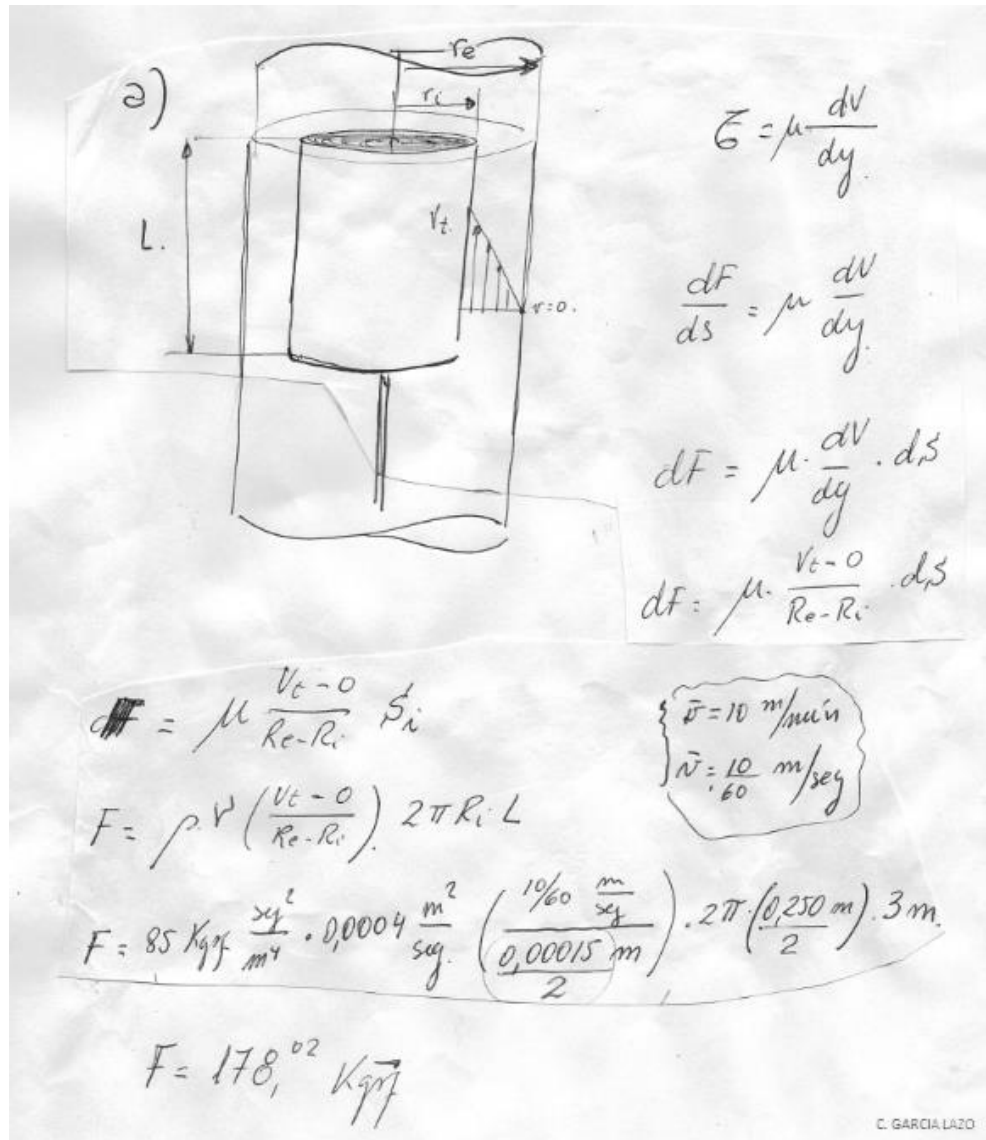 a)
re
ri
L.
Vt.
v=0.
τ = μ dV/dy.
dF/ds = μ dV/dy.
dF = μ. dV/dy . ds
dF = μ. Vt-0/Re-Ri . ds
= μ Vt-0/Re-Ri Si
v̄=10 m/min
v̄=10/60 m/seg
F= ρ.ν (Vt-0/Re-Ri). 2πRi L
F= 85 Kgrf seg²/m⁴ . 0,0004 m²/seg. (10/60 m/seg / 0,00015/2 m) . 2π.(0,250 m/2) . 3 m.
F= 178,02 Kgrf
C. GARCIA LAZO